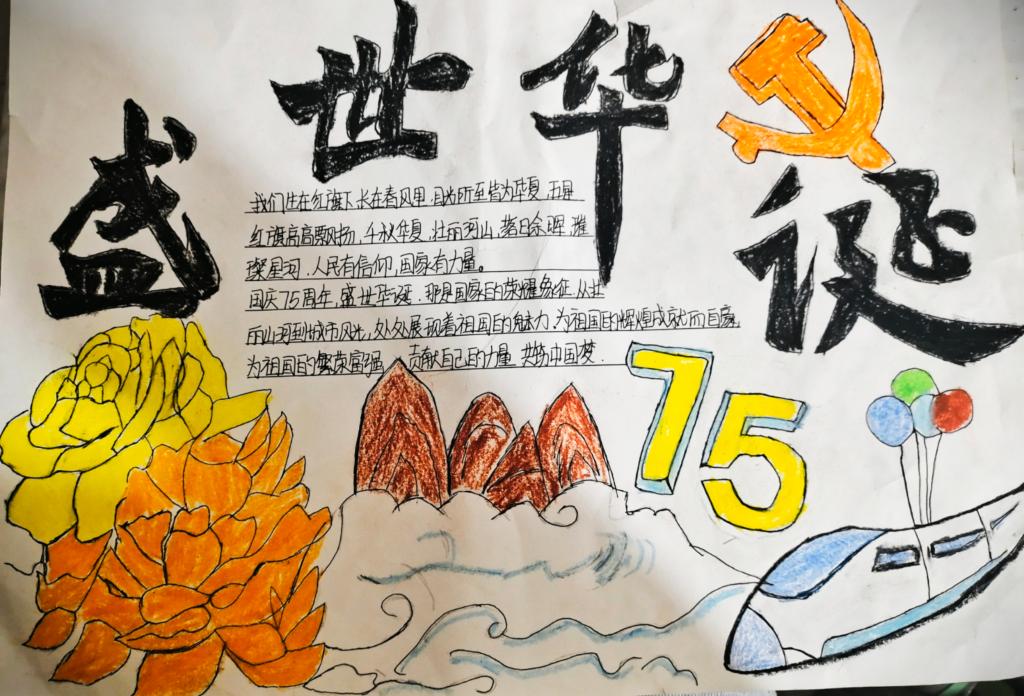 盛世华诞
我们生在红旗下,长在春风里,目光所至皆为华夏,五星
红旗高高飘扬,千秋华夏,壮丽河山,落日余晖,璀
璨星河,人民有信仰,国家有力量。
国庆75周年,盛世华诞,那是国家的荣耀象征,从壮
丽山河到城市风光,处处展现着祖国的魅力,为祖国的辉煌成就而自豪,
为祖国的繁荣富强,贡献自己的力量,共筑中国梦.
75